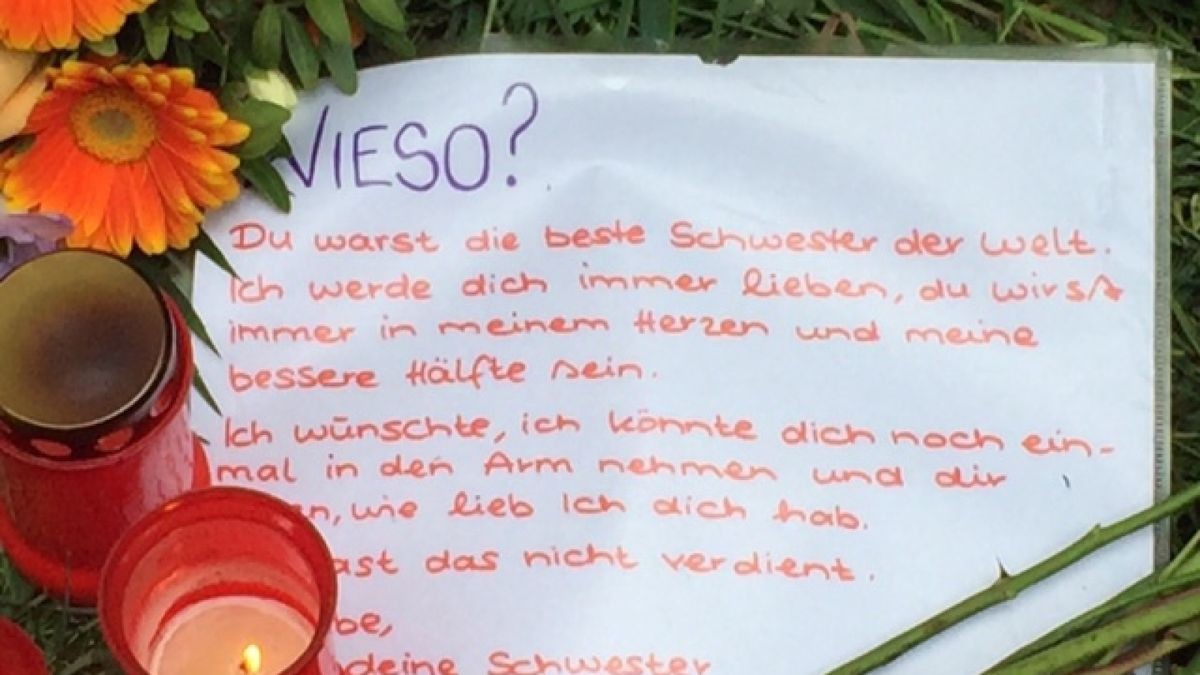 WIESO?
Du warst die beste Schwester der Welt.
Ich werde dich immer lieben, du wirst
immer in meinem Herzen und meine
bessere Hälfte sein.
Ich wünschte, ich könnte dich noch ein-
mal in den Arm nehmen und dir
wie lieb Ich dich hab.
das nicht verdient.
deine Schwester